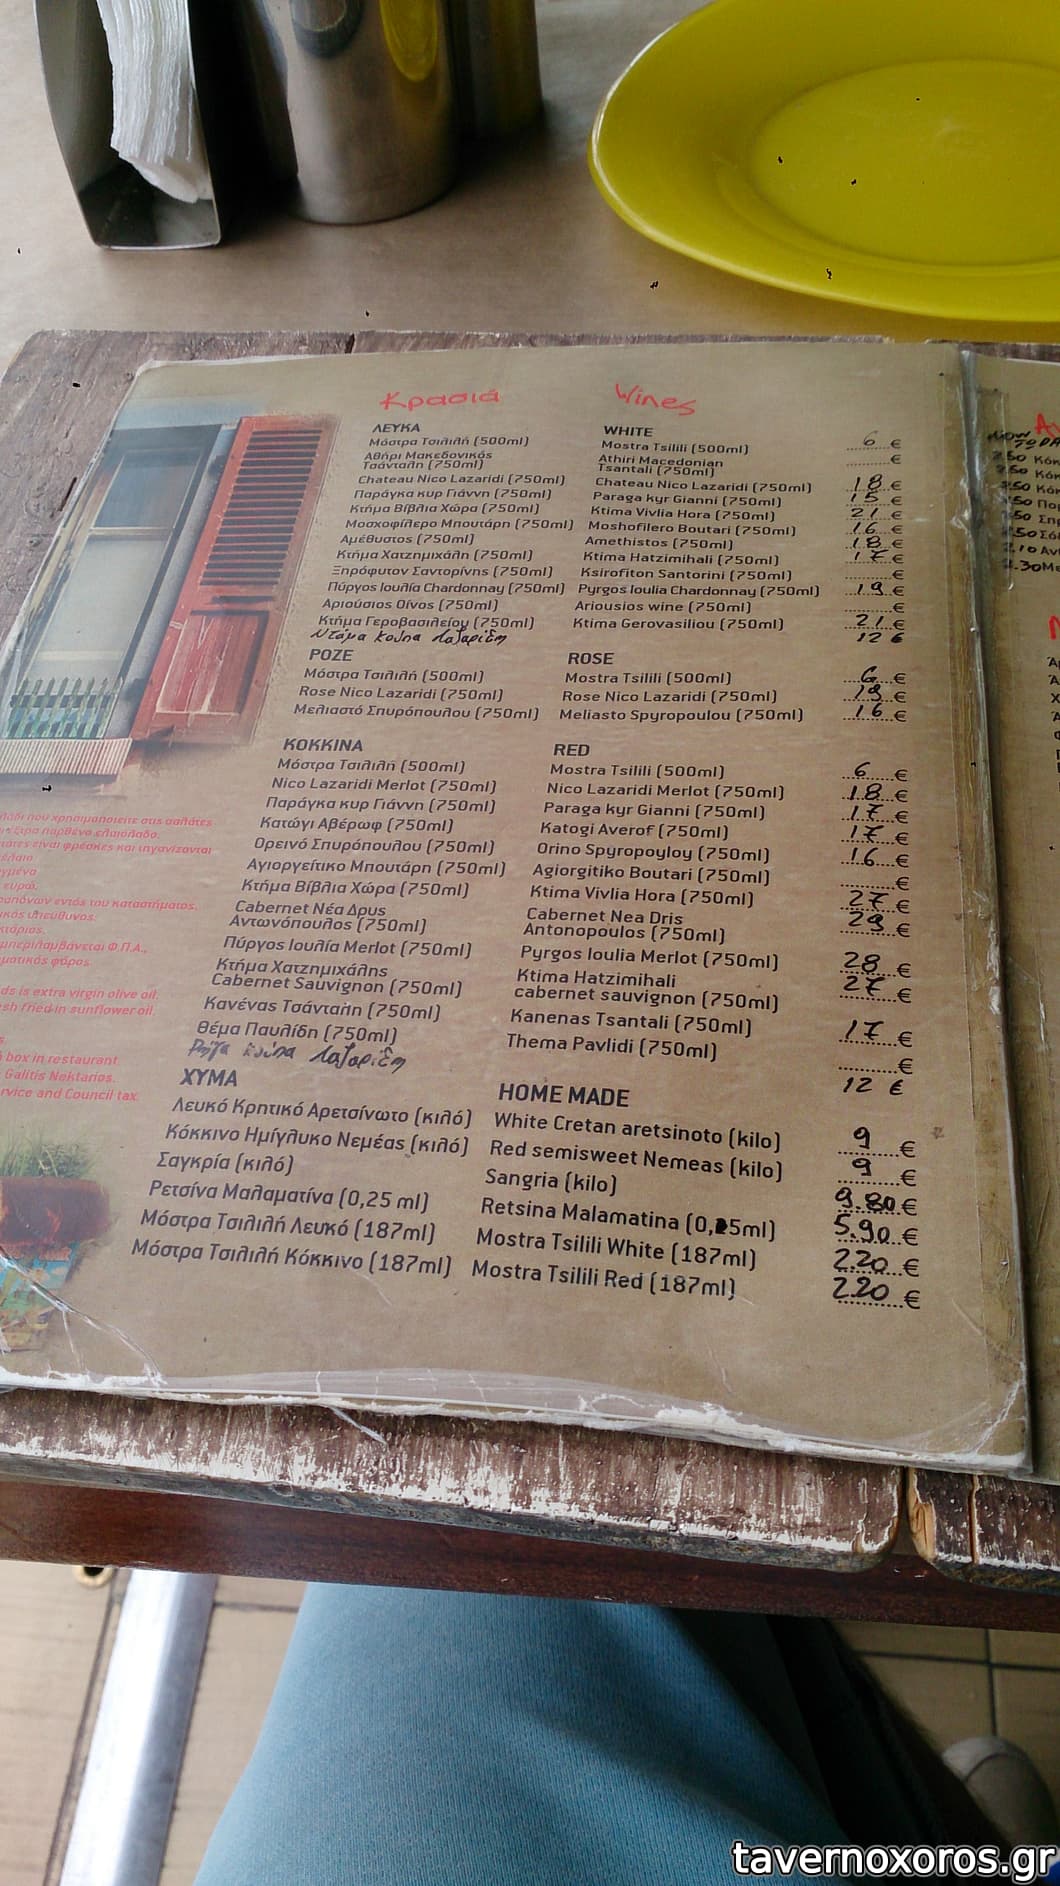 Κρασιά Wines
ΛΕΥΚΑ WHITE
Μόστρα Τσιλιλή (500ml) Mostra Tsilili (500ml) 6 €
Αθήρι Μακεδονικός Athiri Macedonian €
Τσάνταλη (750ml) Tsantali (750ml)
Chateau Nico Lazaridi (750ml) Chateau Nico Lazaridi (750ml) 18 €
Παράγκα κυρ Γιάννη (750ml) Paraga kyr Gianni (750ml) 15 €
Κτήμα Βίβλια Χώρα (750ml) Ktima Vivlia Hora (750ml) 21 €
Μοσχοφίλερο Μπουτάρη (750ml) Moshofilero Boutari (750ml) 16 €
Αμέθυστος (750ml) Amethistos (750ml) 18 €
Κτήμα Χατζημιχάλη (750ml) Ktima Hatzimihali (750ml) 17 €
Ξηρόφυτον Σαντορίνης (750ml) Ksirofiton Santorini (750ml) €
Πύργος Ιουλία Chardonnay (750ml) Pyrgos Ioulia Chardonnay (750ml) 19 €
Αριούσιος Οίνος (750ml) Ariousios wine (750ml) €
Κτήμα Γεροβασιλείου (750ml) Ktima Gerovasiliou (750ml) 21 €
Ντάμα κούπα Λαζαρίδη 12 €
ΡΟΖΕ ROSE
Μόστρα Τσιλιλή (500ml) Mostra Tsilili (500ml) 6 €
Rose Nico Lazaridi (750ml) Rose Nico Lazaridi (750ml) 18 €
Μελιαστό Σπυρόπουλου (750ml) Meliasto Spyropoulou (750ml) 16 €
ΚΟΚΚΙΝΑ RED
Μόστρα Τσιλιλή (500ml) Mostra Tsilili (500ml) 6 €
Nico Lazaridi Merlot (750ml) Nico Lazaridi Merlot (750ml) 18 €
Παράγκα κυρ Γιάννη (750ml) Paraga kyr Gianni (750ml) 17 €
Κατώγι Αβέρωφ (750ml) Katogi Averof (750ml) 17 €
Ορεινό Σπυρόπουλου (750ml) Orino Spyropoyloy (750ml) 16 €
Αγιοργείτικο Μπουτάρη (750ml) Agiorgitiko Boutari (750ml) €
Κτήμα Βίβλια Χώρα (750ml) Ktima Vivlia Hora (750ml) 27 €
Cabernet Νέα Δρυς Cabernet Nea Dris 29 €
Αντωνόπουλος (750ml) Antonopoulos (750ml)
Πύργος Ιουλία Merlot (750ml) Pyrgos Ioulia Merlot (750ml) 28 €
Κτήμα Χατζημιχάλης Ktima Hatzimihali 27 €
Cabernet Sauvignon (750ml) cabernet sauvignon (750ml)
Κανένας Τσάνταλη (750ml) Kanenas Tsantali (750ml) 17 €
Θέμα Παυλίδη (750ml) Thema Pavlidi (750ml) €
Ρήγα κούπα Λαζαρίδη 12 €
ΧΥΜΑ HOME MADE
Λευκό Κρητικό Αρετσίνωτο (κιλό) White Cretan aretsinoto (kilo) 9 €
Κόκκινο Ημίγλυκο Νεμέας (κιλό) Red semisweet Nemeas (kilo) 9 €
Σαγκρία (κιλό) Sangria (kilo) 9.80 €
Ρετσίνα Μαλαματίνα (0,25 ml) Retsina Malamatina (0,25ml) 5.90 €
Μόστρα Τσιλιλή Λευκό (187ml) Mostra Tsilili White (187ml) 2.20 €
Μόστρα Τσιλιλή Κόκκινο (187ml) Mostra Tsilili Red (187ml) 2.20 €
λάδι που χρησιμοποιείτε στις σαλάτες
έξτρα παρθένο ελαιόλαδο.
είναι φρέσκες και τηγανίζονται
ευρώ.
εντός του καταστήματος.
υπεύθυνος.
Φ.Π.Α.,
φόρος.
is extra virgin olive oil.
fried in sunflower oil.
box in restaurant.
Galitis Nektarios.
and Council tax.
tavernoxoros.gr